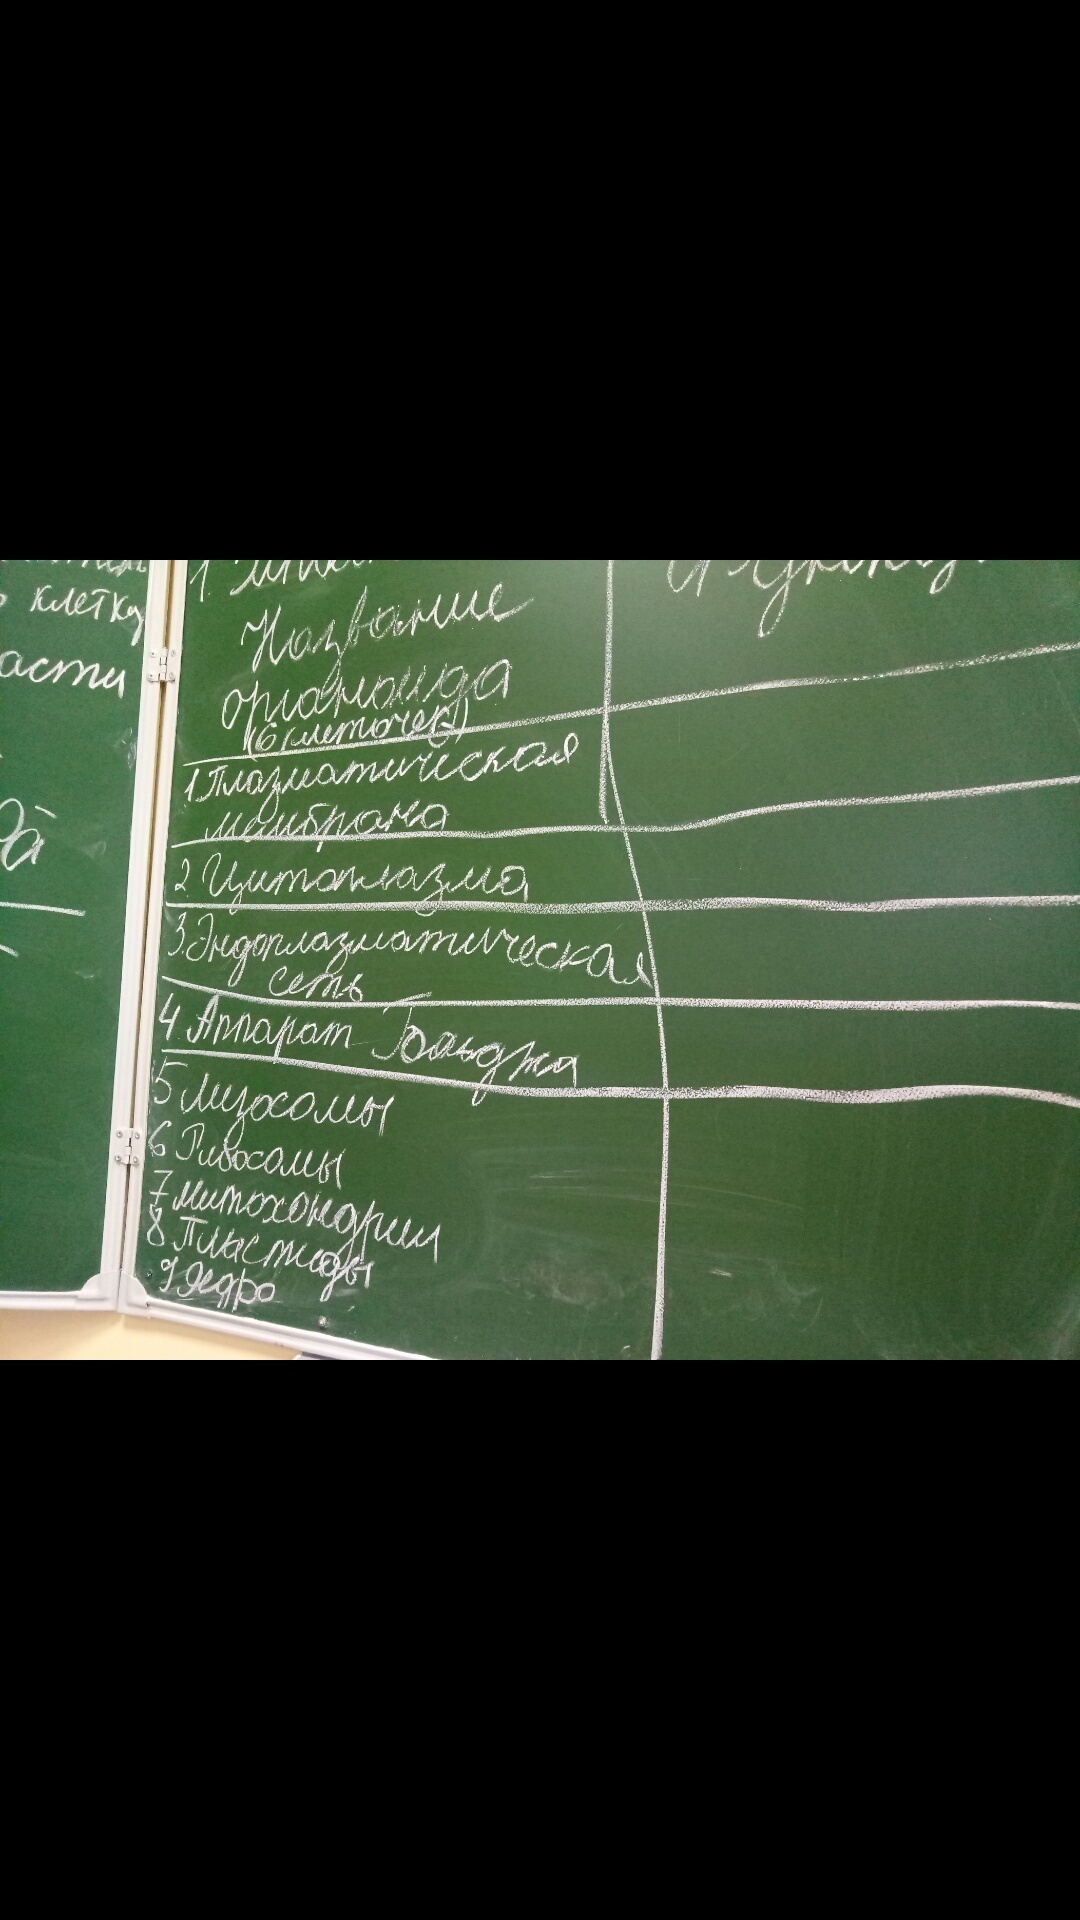 клетку
асти
1.
Название
органоида
(6 клеточек)
1. Плазматическая
мембрана
2. Цитоплазма
3. Эндоплазматическая
сеть
4. Аппарат Гольджи
5 Лизосомы
6 Рибосомы
7 Митохондрии
8 Пластиды
9 Ядро